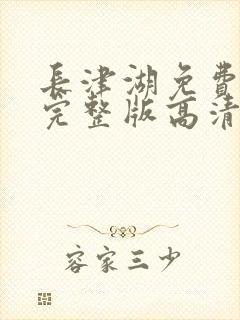 長津湖免費
完整版高清
容家三少